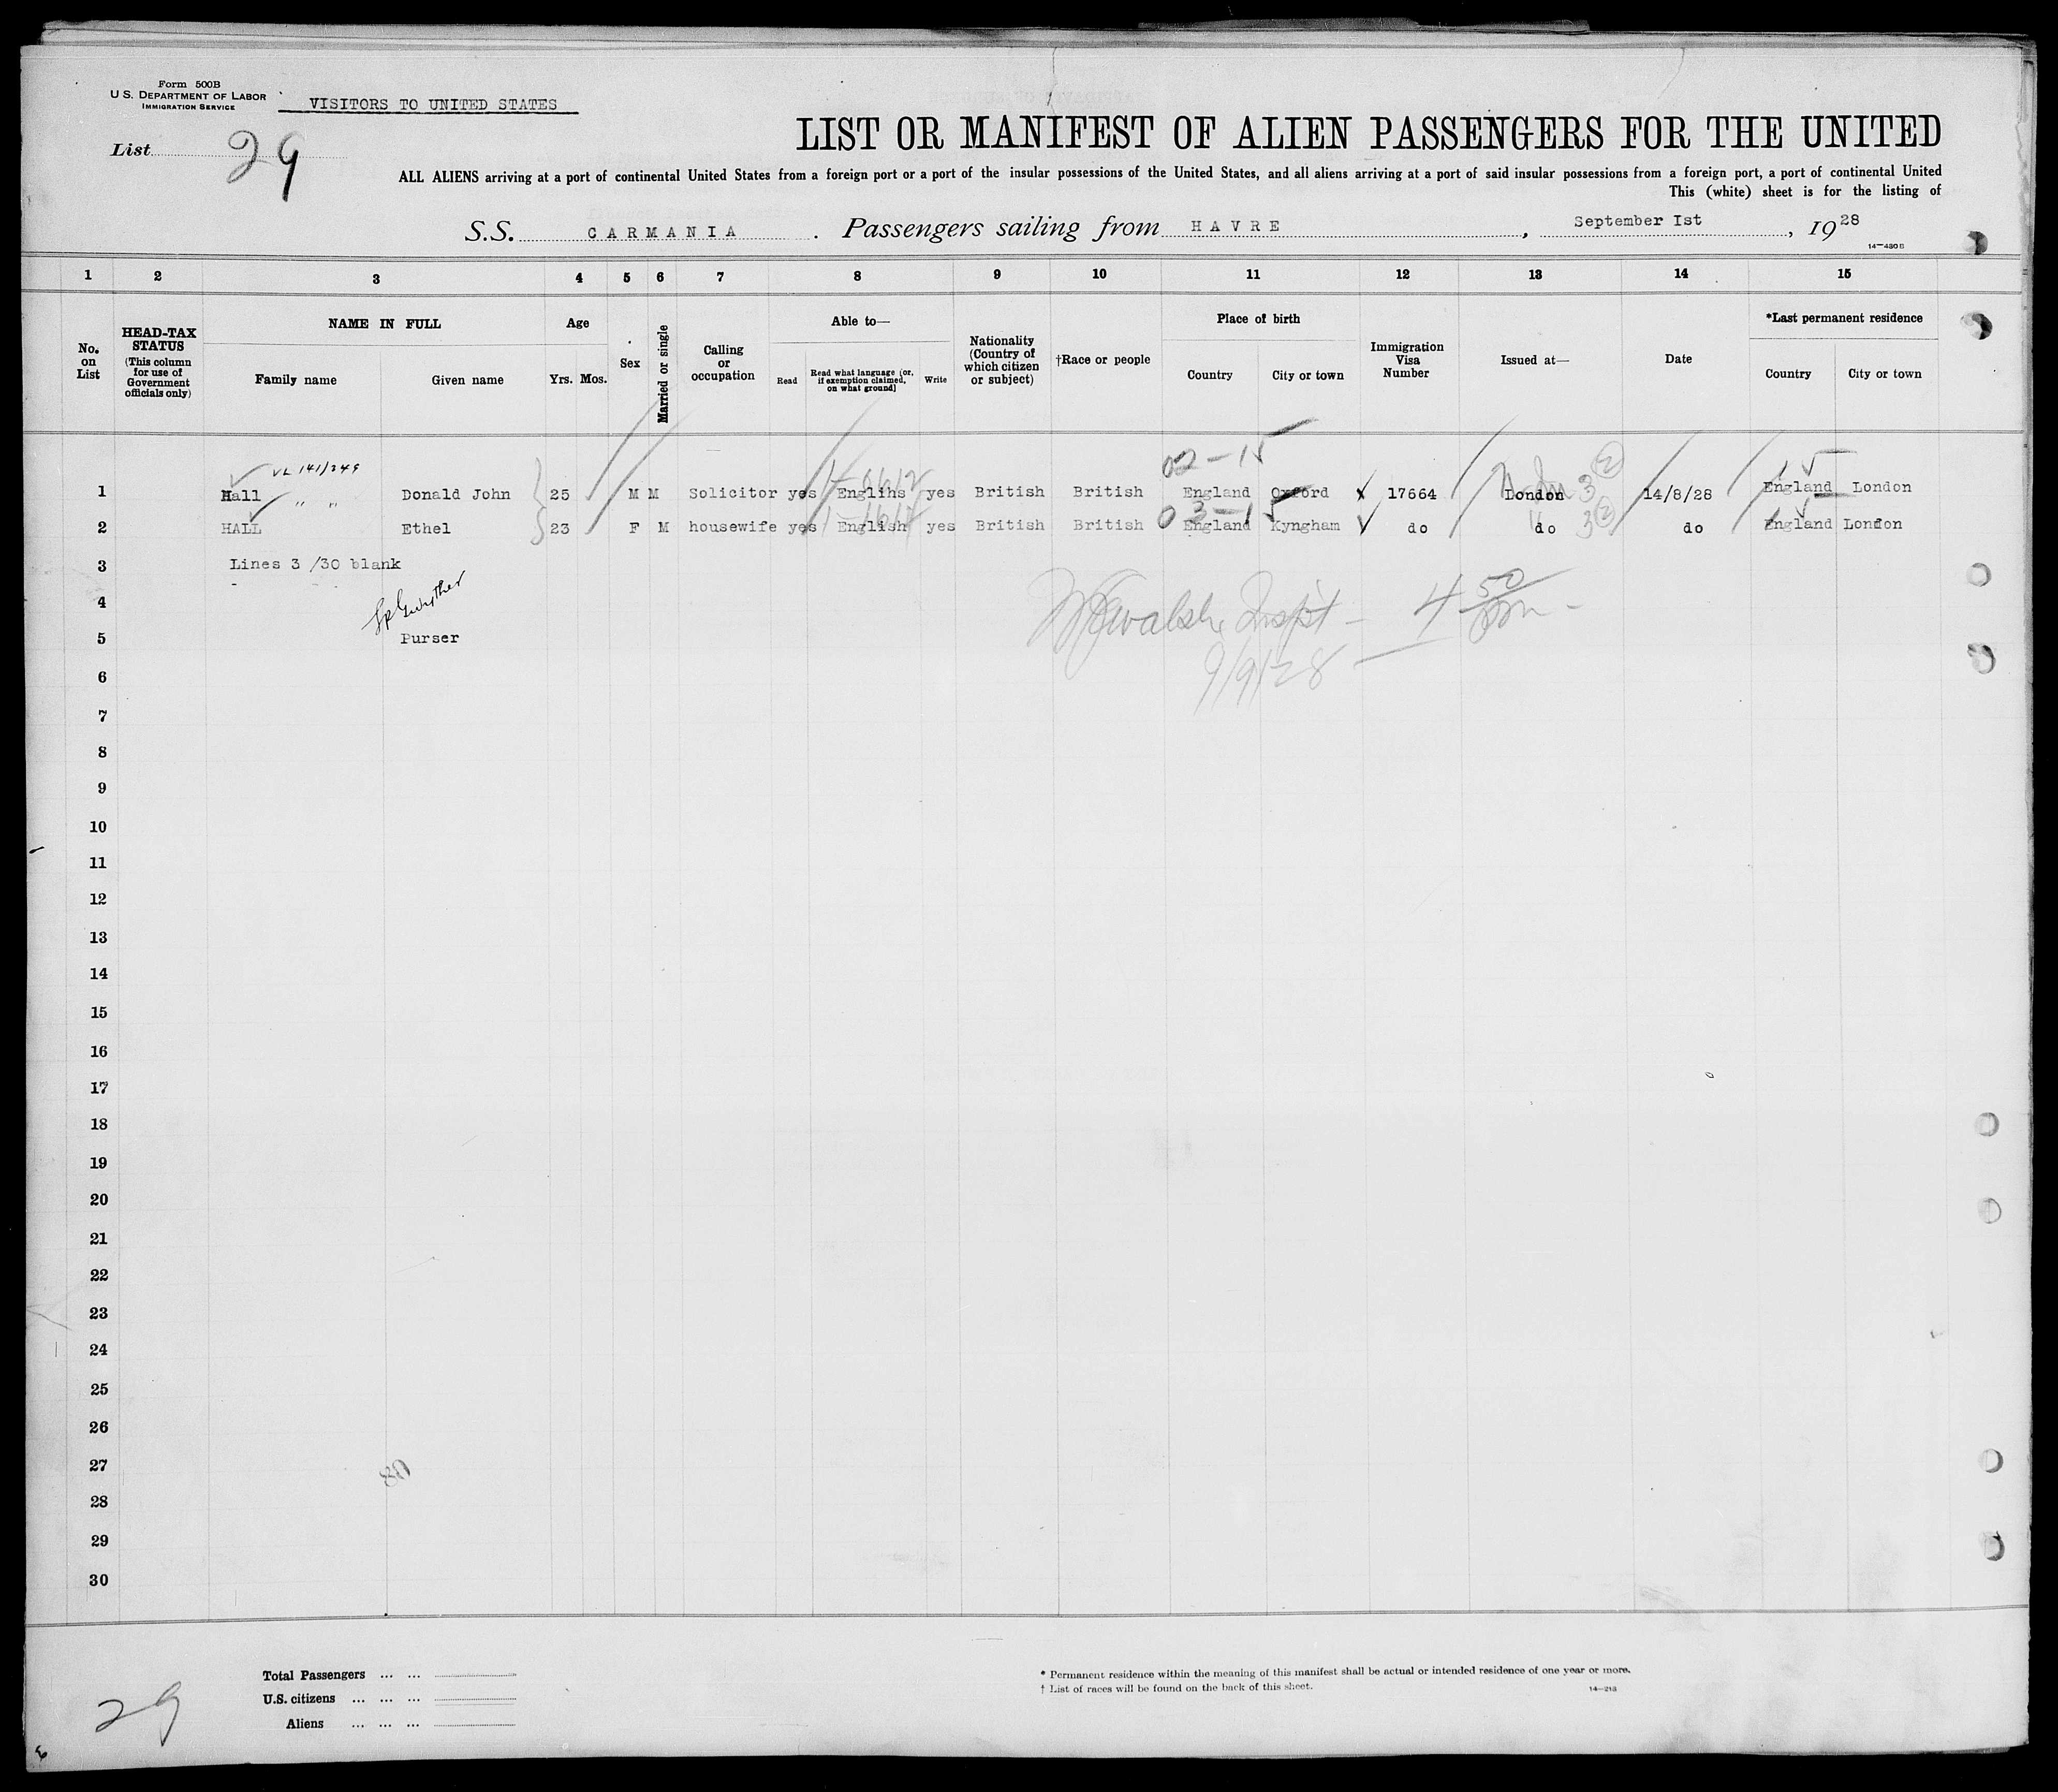 Form 500B
U.S. DEPARTMENT OF LABOR
IMMIGRATION SERVICE
VISITORS TO UNITED STATES
List 29
LIST OR MANIFEST OF ALIEN PASSENGERS FOR THE UNITED
ALL ALIENS arriving at a port of continental United States from a foreign port or a port of the insular possessions of the United States, and all aliens arriving at a port of said insular possessions from a foreign port, a port of continental United
This (white) sheet is for the listing of
S.S. CARMANIA. Passengers sailing from HAVRE, September Ist, 1928
14-430B
1 2 3 4 5 6 7 8 9 10 11 12 13 14 15
No. on List
HEAD-TAX STATUS (This column for use of Government officials only)
NAME IN FULL
Family name Given name
Age
Yrs. Mos.
Sex
Married or single
Calling or occupation
Able to—
Read Read what language [or, if exemption claimed, on what ground] Write
Nationality (Country of which citizen or subject)
†Race or people
Place of birth
Country City or town
Immigration Visa Number
Issued at—
Date
*Last permanent residence
Country City or town
02-15
VL 141/249
1 Hall Donald John 25 M M Solicitor yes Englihs yes British British England Oxford 17664 London 14/8/28 England London
03-15
2 HALL Ethel 23 F M housewife yes English yes British British England Kyngham do do do England London
3 Lines 3 /30 blank
4
5 Purser
Walsh Inspt - 4 50 pm -
9/9/28
6
7
8
9
10
11
12
13
14
15
16
17
18
19
20
21
22
23
24
25
26
27
28
29
30
Total Passengers ... ...
U.S. citizens ... ... ...
Aliens ... ... ...
* Permanent residence within the meaning of this manifest shall be actual or intended residence of one year or more.
† List of races will be found on the back of this sheet.
14-213
29